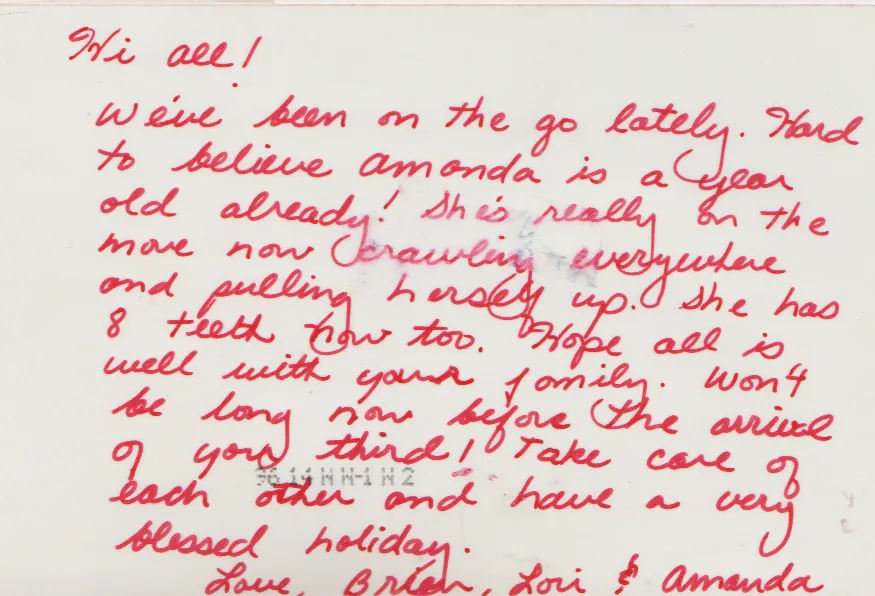 Hi all!
We've been on the go lately. Hard
to believe Amanda is a year
old already! She's really on the
move now crawling everywhere
and pulling herself up. She has
8 teeth now too. Hope all is
well with your family. Won't
be long now before the arrival
of your third! Take care of
96 14 N N-1 N 2
each other and have a very
blessed holiday.
Love, Brian, Lori & Amanda